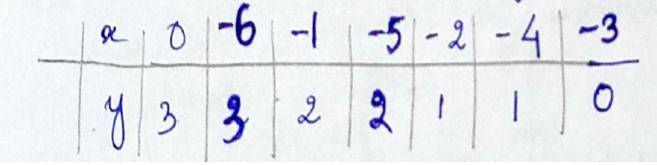 x 0 -6 -1 -5 -2 -4 -3
y 3 3 2 2 1 1 0